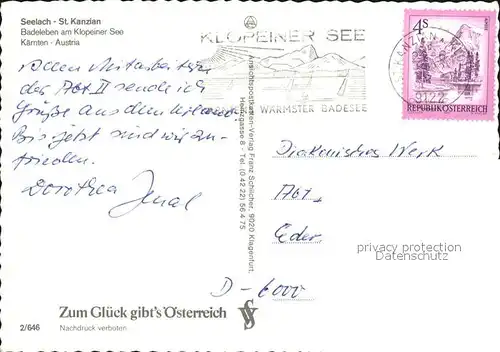 Seelach - St. Kanzian
Badeleben am Klopeiner See
Kärnten · Austria
KLOPEINER SEE
WÄRMSTER BADESEE
4S
REPUBLIK ÖSTERREICH
9122
Allen Mitarbeitern
der Abt. II sende ich
Grüße aus dem Urlaub.
Bis jetzt sind wir zu-
frieden.
Dorothea
Ansichtspostkarten-Verlag Franz Schilcher, 9020 Klagenfurt,
Tel. (0 42 22) 56 4 75
Diakonisches Werk
Abt.
D-6000
privacy protection
Datenschutz
Zum Glück gibt's Österreich
2/646
Nachdruck verboten